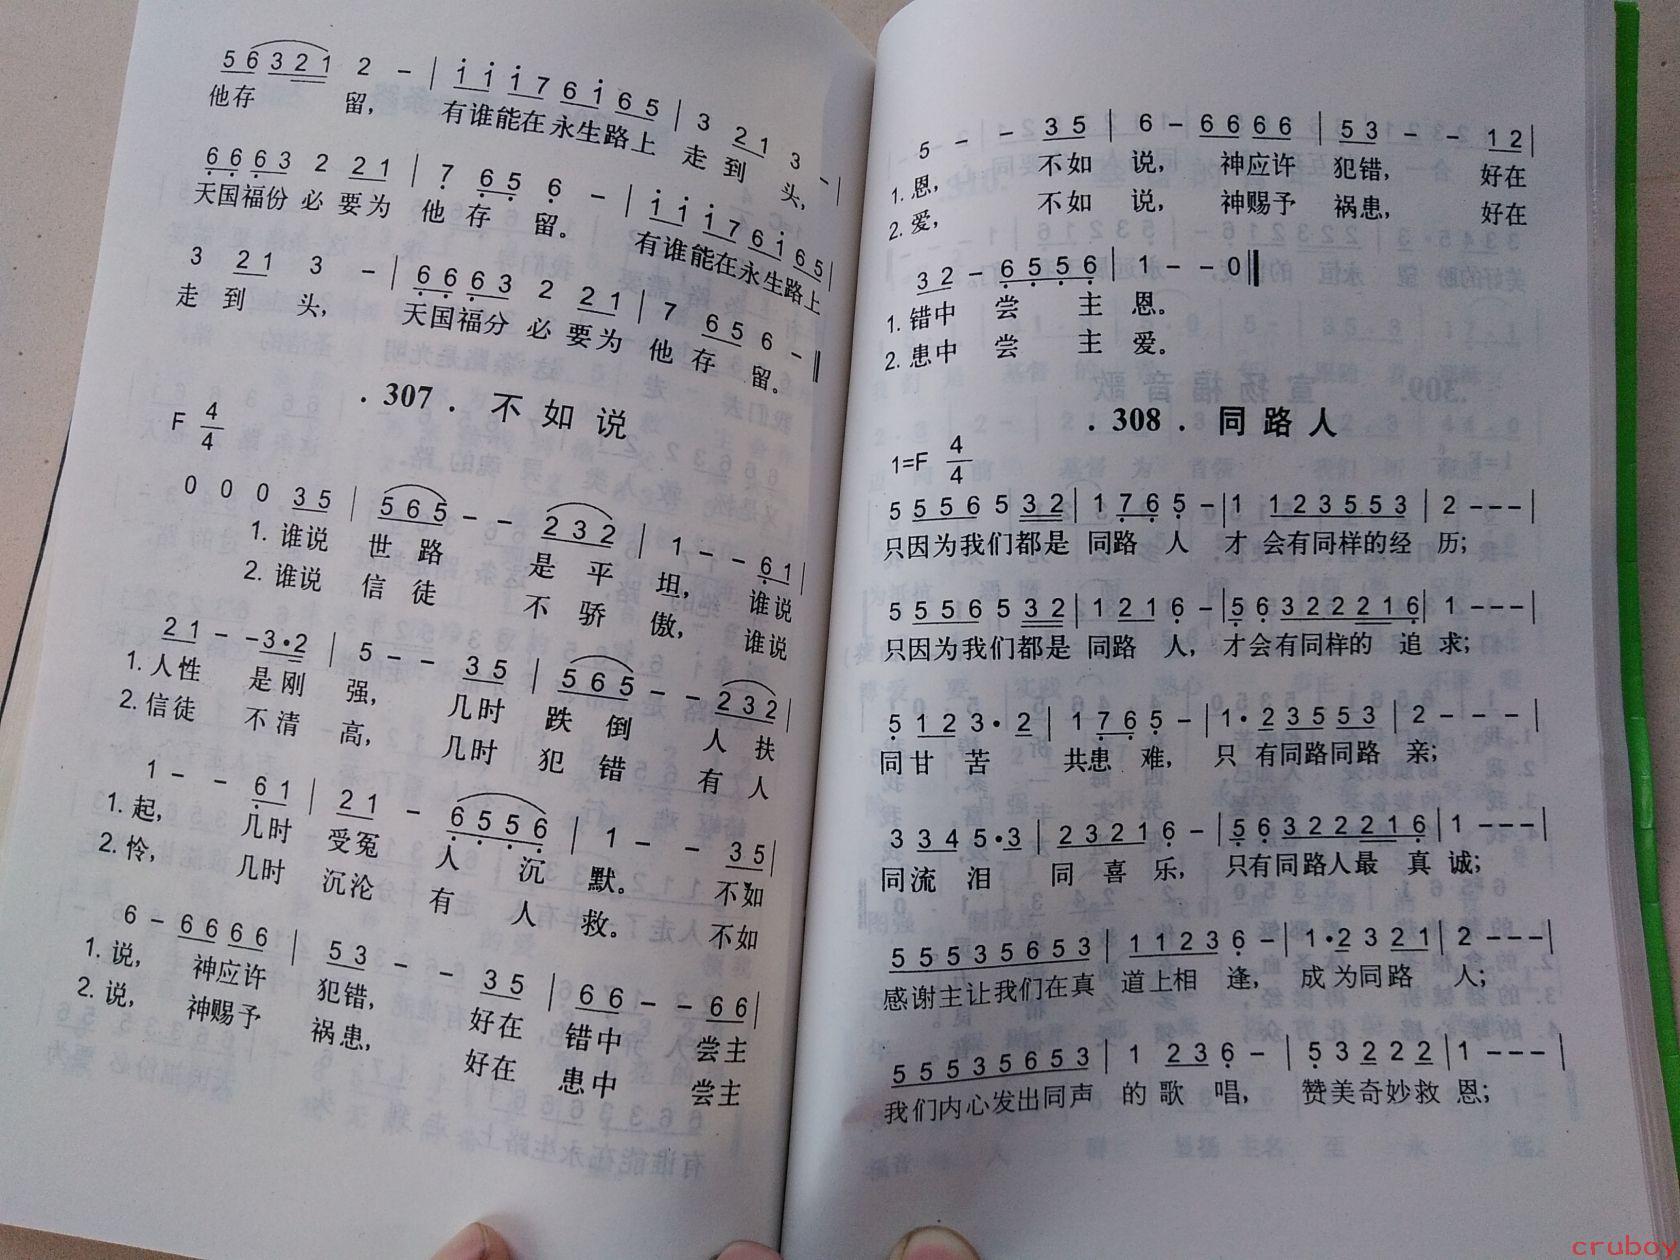 5 6 3 2 1 2 - | 1 1 1 7 6 1 6 5 | 3 2 1 3 - |
他存 留， 有谁能在永生路上 走 到 头，
6 6 6 3 2 2 1 | 7 6 5 6 - | 1 1 1 7 6 1 6 5 |
天国福份 必 要为 他 存 留。 有谁能在永生路上
3 2 1 3 - | 6 6 6 3 2 2 1 | 7 6 5 6 - ‖
走 到 头， 天国福分 必 要为 他 存 留。
. 307 . 不 如 说
F 4/4
0 0 0 3 5 | 5 6 5 - - 2 3 2 | 1 - - 6 1 |
1. 谁说 世 路 是 平 坦， 谁说
2. 谁说 信 徒 不 骄 傲， 谁说
2 1 - - 3·2 | 5 - - 3 5 | 5 6 5 - - 2 3 2 |
1. 人性 是刚 强， 几时 跌 倒 人 扶
2. 信徒 不清 高， 几时 犯 错 有 人
1 - - 6 1 | 2 1 - 6 5 5 6 | 1 - - 3 5 |
1. 起， 几时 受冤 人 沉 默。 不如
2. 怜， 几时 沉沦 有 人 救。 不如
6 - 6 6 6 6 | 5 3 - - 3 5 | 6 6 - - 6 6 |
1. 说， 神应许 犯错， 好在 错中 尝主
2. 说， 神赐予 祸患， 好在 患中 尝主
5 - - 3 5 | 6 - 6 6 6 6 | 5 3 - - 1 2 |
1. 恩， 不如 说， 神应许 犯错， 好在
2. 爱， 不如 说， 神赐予 祸患， 好在
3 2 - 6 5 5 6 | 1 - - 0 ‖
1. 错中 尝 主 恩。
2. 患中 尝 主 爱。
. 308 . 同 路 人
1=F 4/4
5 5 5 6 5 3 2 | 1 7 6 5 - | 1 1 2 3 5 5 3 | 2 - - - |
只因为我们都是 同路 人 才 会有同样的经 历；
5 5 5 6 5 3 2 | 1 2 1 6 - | 5 6 3 2 2 2 1 6 | 1 - - - |
只因为我们都是 同路 人， 才会有同样的 追 求；
5 1 2 3·2 | 1 7 6 5 - | 1·2 3 5 5 3 | 2 - - - |
同甘 苦 共患 难， 只 有同路同路 亲；
3 3 4 5·3 | 2 3 2 1 6 - | 5 6 3 2 2 2 1 6 | 1 - - - |
同流 泪 同 喜 乐， 只有同路人最 真 诚；
5 5 5 3 5 6 5 3 | 1 1 2 3 6 - | 1·2 3 2 1 | 2 - - - |
感谢主让我们在真 道上相 逢， 成为同路 人；
5 5 5 3 5 6 5 3 | 1 2 3 6 - | 5 3 2 2 2 | 1 - - - |
我们内心发出同声 的 歌 唱， 赞美奇妙救 恩；
cruboy